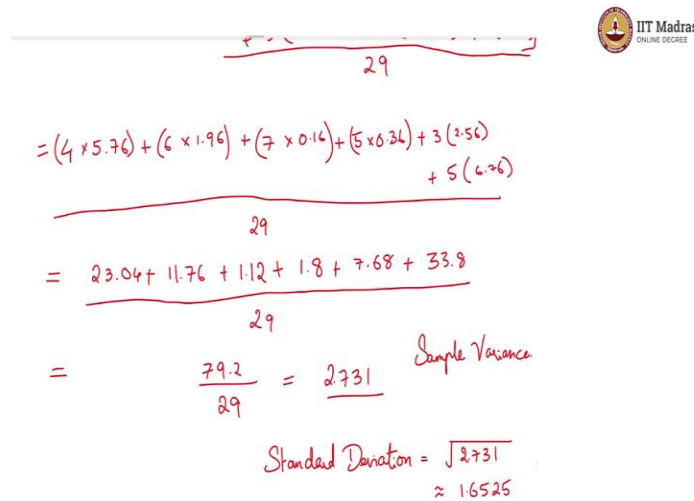 IIT Madras
ONLINE DEGREE
29
= (4 × 5.76) + (6 × 1.96) + (7 × 0.16) + (5 × 0.36) + 3 (2.56)
+ 5 (6.76)
29
= 23.04 + 11.76 + 1.12 + 1.8 + 7.68 + 33.8
29
= 79.2 = 2.731 Sample Variance.
29
Standard Deviation = √2.731
≈ 1.6525